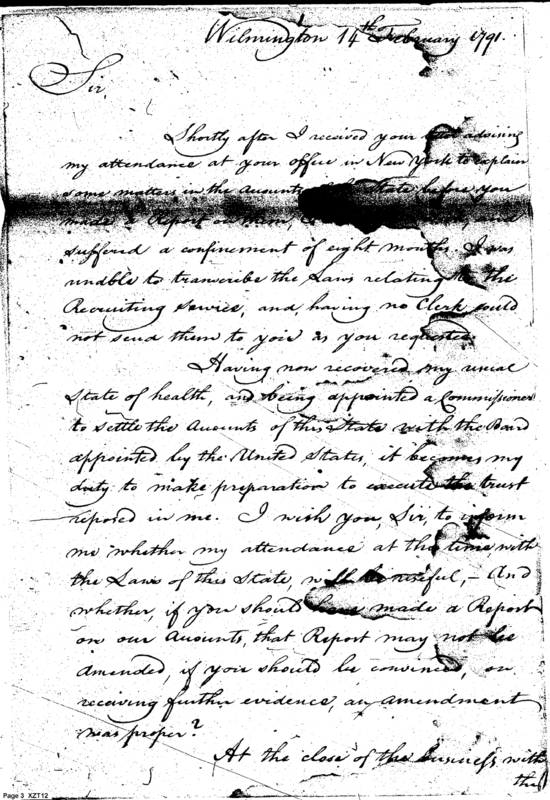 Wilmington 14th February 1791.
Sir,
Shortly after I received your advising
my attendance at your office in New York to explain
some matters in the Accounts of this State before you
made a Report on them, and
suffered a confinement of eight months. I was
unable to transcribe the Laws relating to the
Recruiting Service, and, having no Clerk could
not send them to you as you requested.
Having now recovered my usual
State of health, and being appointed a Commissioner
to settle the Accounts of this State with the Board
appointed by the United States, it becomes my
duty to make preparation to execute the trust
reposed in me. I wish you, Sir, to inform
me whether my attendance at this time with
the Laws of this State, will be useful, – And
whether, if you should have made a Report
on our Accounts, that Report may not be
amended, if you should be convinced, on
receiving further evidence, an amendment
was proper?
At the close of the business with
the
Page 3 XZT12